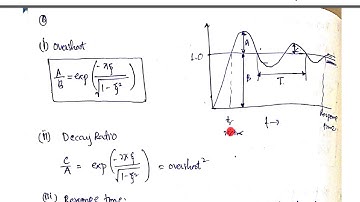 (i) Overshoot
A/B = exp(-πξ/√1-ξ²)
1.0
A
B
T
t →
tr
Response
time
(ii) Decay Ratio
C/A = exp(-2πξ/√1-ξ²) = overshoot²
(iii) Response time: